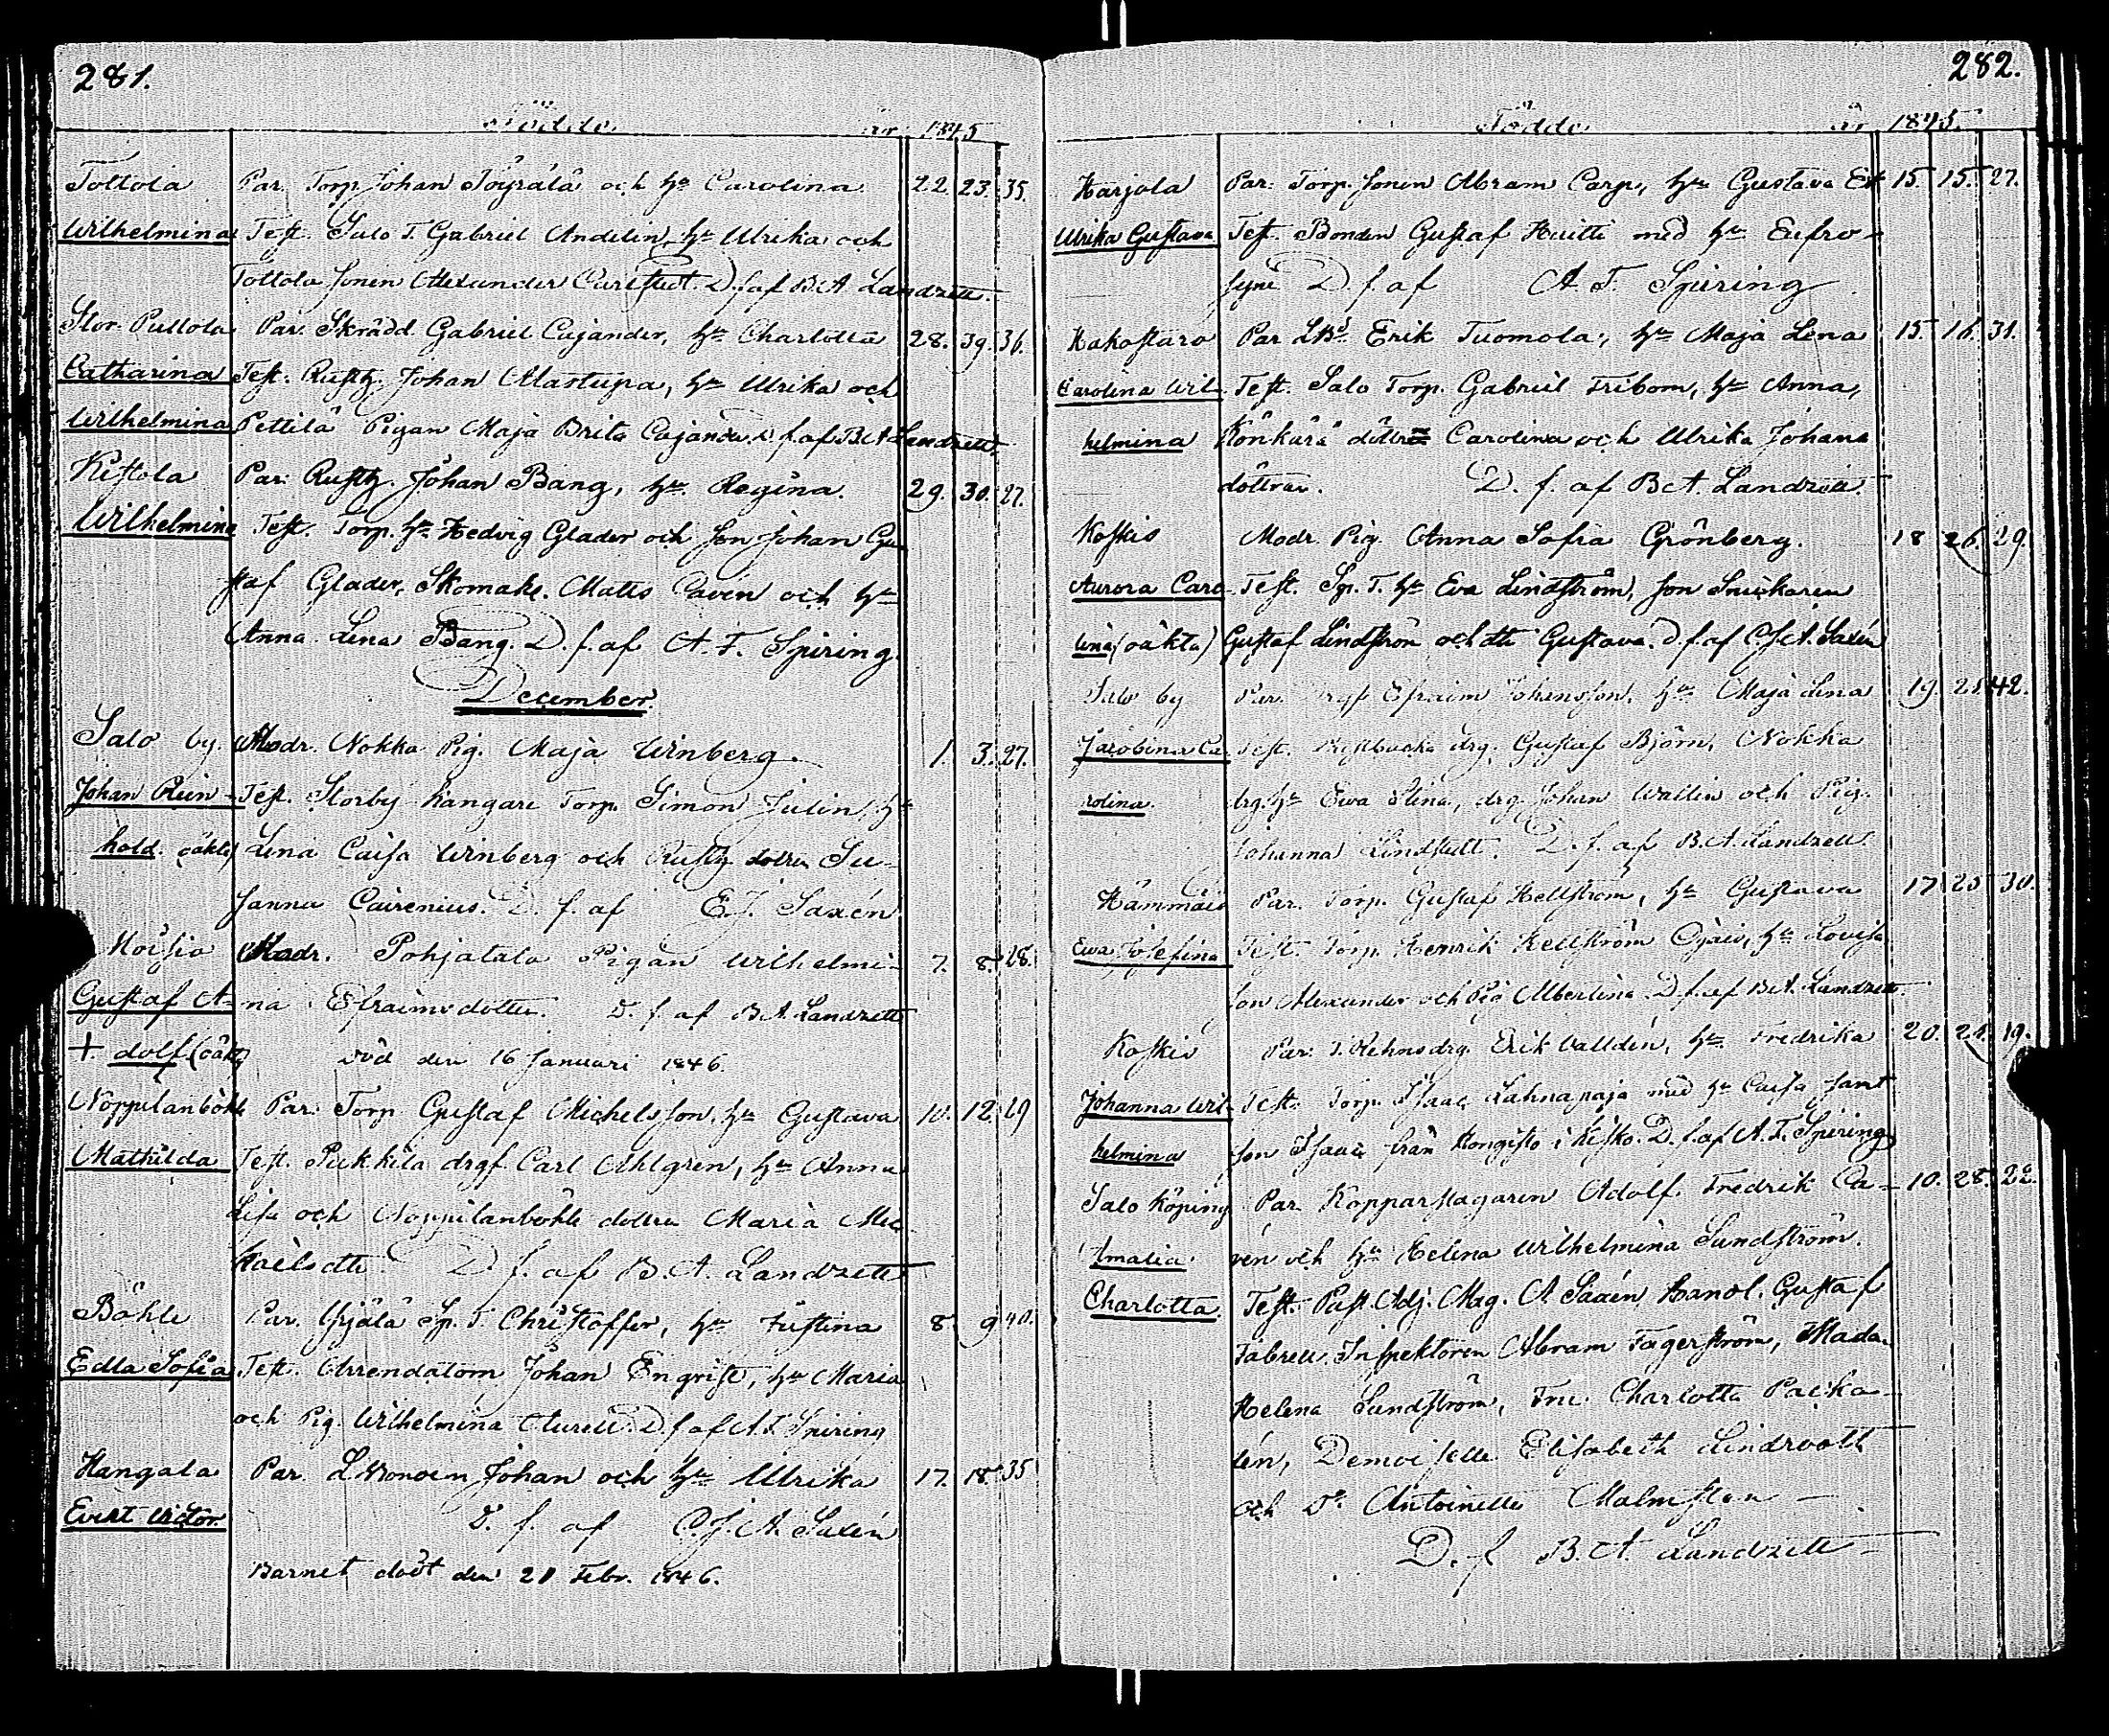 281.
Födde år 1845
Tottola Par. Torp. Johan Töyrälä och h:u Carolina 22. 23. 35.
Wilhelmina Test. Salo T. Gabriel Andelin, h:u Ulrika och
Tottola sonen Alexander Carlstedt. D. f. af B. A. Landzett.
Stor Pullola Par. Skrädd. Gabriel Cajander, h:u Charlotta 28. 39. 36.
Catharina Test. Rusth. Johan Martupa, h:u Ulrika och
Wilhelmina Pettilä Pigan Maja Brita Cajander D. f. af B. A. Landzett.
Kistola Par. Rusth. Johan Bang, h:u Regina. 29. 30. 27.
Wilhelmina Test. Torp. h:u Hedvig Glader och son Johan Gu-
staf Glader, Skomak. Matts Caven och h:u
Anna Lena Bang. D. f. af A. F. Spiring.
December.
Salo by. Modr. Nokka Pig. Maja Winberg. 1. 3. 27.
Johan Rein- Test. Storby Kangare Torp. Simon Julin, h:u
hold. (oäkta) Lena Caisa Winberg och Rusth. dottren Su-
sanna Cairenius. D. f. af E. J. Saxén
Moisio Modr. Pohjatalo Pigan Wilhelmi- 7. 8. 28.
Gustaf A- na Efraimsdotter. D. f. af B. A. Landzett
+ dolf (oäkta) död den 16 Januari 1846.
Noppilanböhle Par. Torp Gustaf Michelsson, h:u Gustava 10. 12. 29
Mathilda Test. Pukkila drgf. Carl Ahlgren, h:u Anna
Lisa och Noppilanböhle dottren Maria Mic-
kaelsdtter. D. f. af B. A. Landzett
Böhle Par. Yrjälä Sp. T. Christoffer, h:u Justina 8. 9 40.
Edla Sofia Test. Arrendatorn Johan Engvist, h:u Maria
och Pig. Wilhelmina Aurell. D. f. af A. F. Spiring
Hangala Par. L. Bonden Johan och h:u Ulrika 17. 18. 35
Evert Victor. D. f. af C. J. A. Saxén
Barnet dödt den 21 Febr. 1846.
282.
Födde år 1845.
Harjola Par. Torp. sonen Abram Carp, h:u Gustava 15. 15. 27.
Ulrika Gustava Test. Bonden Gustaf Huitti med h:u Eufro-
syne D. f. af A. F. Spiring
Kakostaro Par. L.B:d Erik Tuomola, h:u Maja Lena 15. 16. 31.
Carolina Wil- Test. Salo Torp. Gabriel Fribom, h:u Anna,
helmina Könkärä döttrar Carolina och Ulrika Johans
döttrar. D. f. af B. A. Landzett.
Koskis Modr. Pig. Anna Sofia Grönberg. 18 26. 29.
Aurora Caro- Test. Sp. T. h:u Eva Lindström, son Snickaren
lina (oäkta) Gustaf Lindström och dtt. Gustava. D. f. af C. J. A. Saxén
Salo by Par. drgf Efraim Johansson, h:u Maja Lena 19. 21. 42.
Jacobina Ca- Test. drg. Gustaf Björn, Nokka
rolina drg. h:u Ewa Stina, drg. Johan Wallin och Pig.
Johanna Lindstedt. D. f. af B. A. Landzett.
Hämmäis Par. Torp. Gustaf Hellström, h:u Gustava 17 25 30.
Ewa Josefina Test. Torp. Henrik Hellström Ojais, h:u Lovisa
son Alexander och Pig. Albertina D. f. af B. A. Landzett.
Koskis Par. drg. Erik Valldén, h:u Fredrika 20. 21. 19.
Johanna Wil- Test. Torp. Isaac Lahnapaja med h:u Caisa samt
helmina son Isaac från Hongisto i Kisko. D. f. af A. F. Spiring
Salo Köping Par. Kopparslagaren Adolf Fredrik Ca- 10. 28. 22.
Amalia vén och h:u Helena Wilhelmina Sundström.
Charlotta Test. Past. Adj. Mag. A. Saxén, Handl. Gustaf
Fabrell, Inspektoren Abram Fagerström, Mada-
Helena Sundström, Fru Charlotta Packa-
lén, Demoiselle Elisabeth Lindrooth
och D:o Antoinette Malmsten
D. f. B. A. Landzett